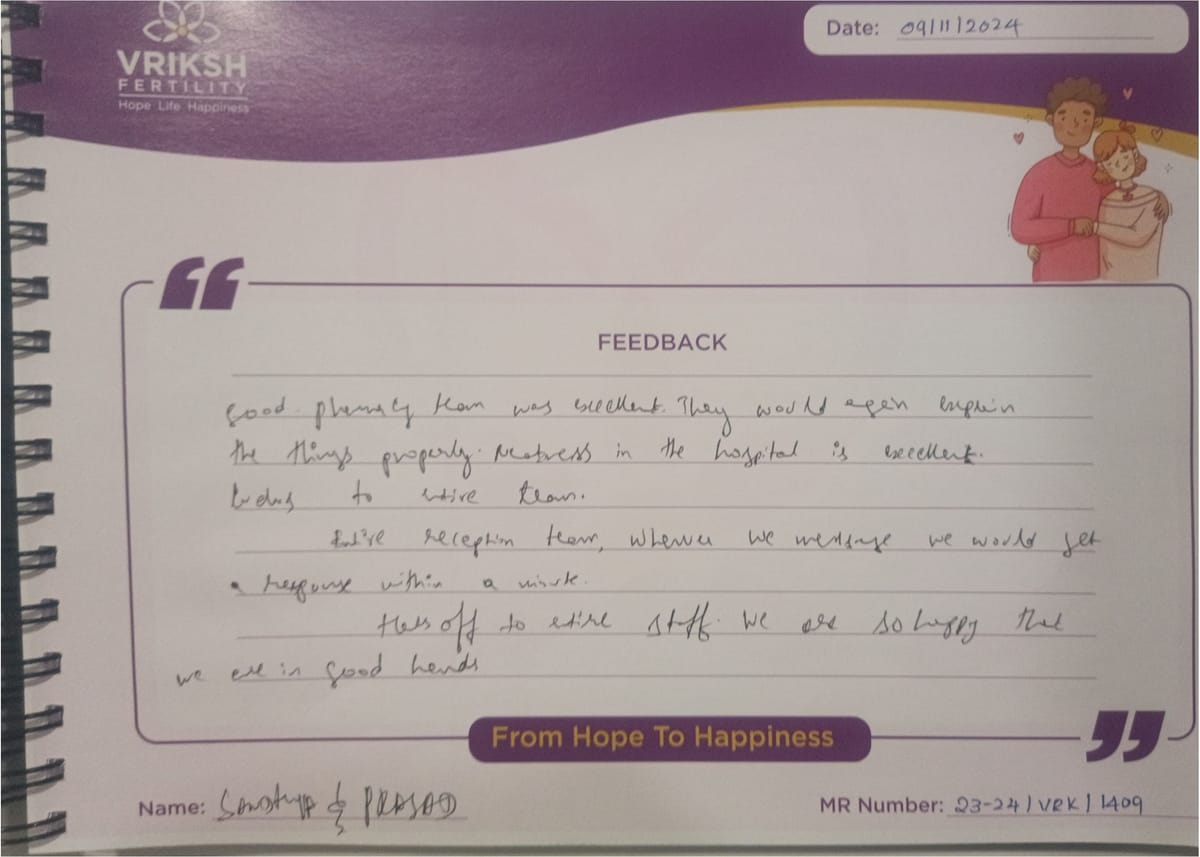 VRIKSH
FERTILITY
Hope Life Happiness
Date: 09/11/2024
FEEDBACK
Good. pharmacy team was excellent. They would again explain
the things properly. Neatness in the hospital is excellent.
to entire team.
Entire reception team, whenever we message we would get
a response within a minute.
Hats off to entire staff. We are so happy that
we are in good hands
From Hope To Happiness
Name: & PRASAD
MR Number: 23-24/VRK/1409